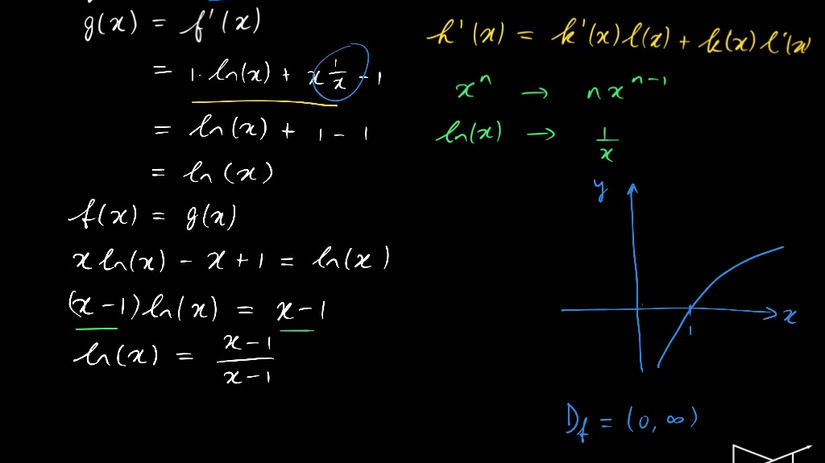 g(x) = f'(x)
= 1·ln(x) + x 1/x - 1
= ln(x) + 1 - 1
= ln(x)
f(x) = g(x)
x ln(x) - x + 1 = ln(x)
(x-1) ln(x) = x-1
ln(x) = (x-1)/(x-1)
h'(x) = k'(x)l(x) + k(x)l'(x)
xⁿ → n xⁿ⁻¹
ln(x) → 1/x
y
x
1
D_f = (0, ∞)